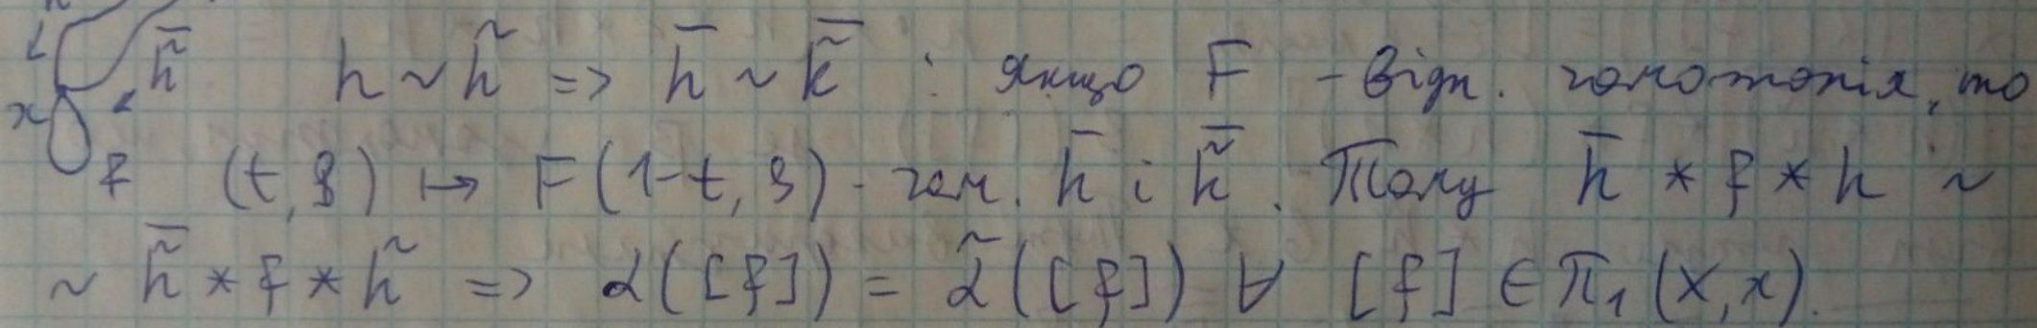 h ~ h̃ => h̄ ~ k̃̄ : якщо F - відп. гомотопія, то
(t, s) ↦ F(1-t, s) - гом. h̄ і h̃̄. Тому h̄ * f * h ~
~ h̃̄ * f * h̃ => α([f]) = α̃([f]) ∀ [f] ∈ π₁(X, x).
h̃̄
x
f